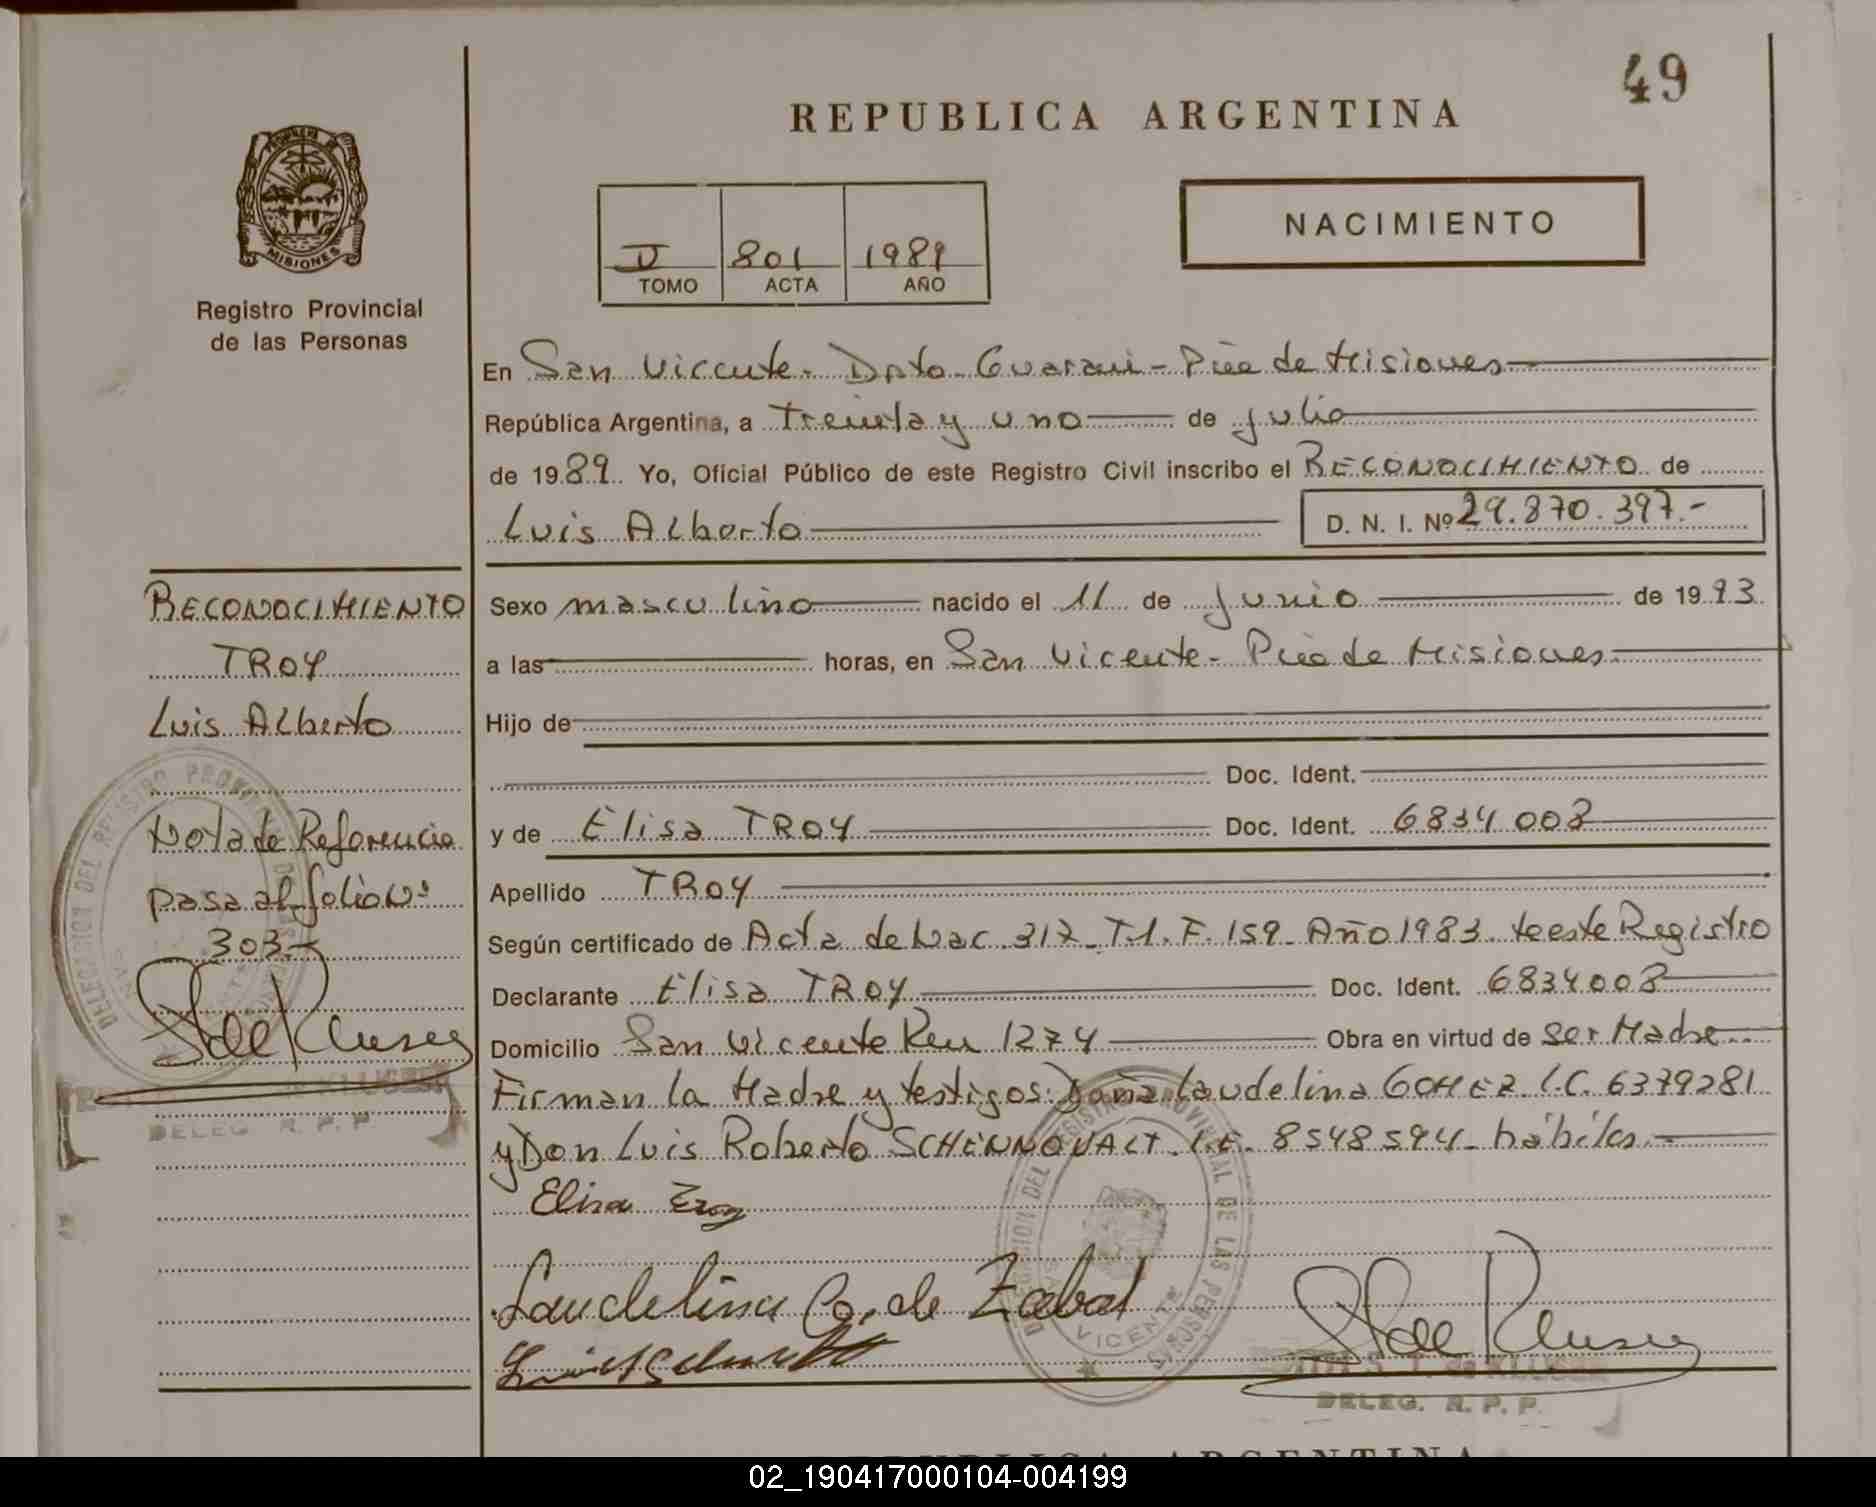 49
REPUBLICA ARGENTINA
PROVINCIA DE
MISIONES
Registro Provincial
de las Personas
801 1989
TOMO ACTA AÑO
NACIMIENTO
En San Vicente - Dpto Guarani - Pcia de Misiones
República Argentina, a Treinta y uno de julio
de 1989. Yo, Oficial Público de este Registro Civil inscribo el RECONOCIMIENTO de
Luis Alberto D. N. I. Nº 29.870.397.-
Sexo masculino nacido el 11 de Junio de 1983
a las horas, en San Vicente - Pcia de Misiones
Hijo de
Doc. Ident.
y de Elisa TROY Doc. Ident. 6834008
Apellido TROY
Según certificado de Acta de Nac. 317 - T.1. F. 159 - Año 1983. de este Registro
Declarante Elisa TROY Doc. Ident. 6834008
Domicilio San Vicente Km 1274 Obra en virtud de Ser Madre
Firman la Madre y testigos: Doña Laudelina GOMEZ L.C. 6379281
y Don Luis Roberto SCHENNOVALT. L.E. 8548594 - hábiles.
Elisa Troy
Laudelina G. de Zabal
DELEGACION DEL REGISTRO PROVINCIAL DE LAS PERSONAS
VICENTE
de KLUSER
DELEG. R. P. P.
RECONOCIMIENTO
TROY
Luis Alberto
Nota de Referencia
pasa al folio Nº
303
DELEGACION DEL REGISTRO PROVINCIAL
de KLUSER
DELEG. R. P. P.
REPUBLICA ARGENTINA
02_190417000104-004199